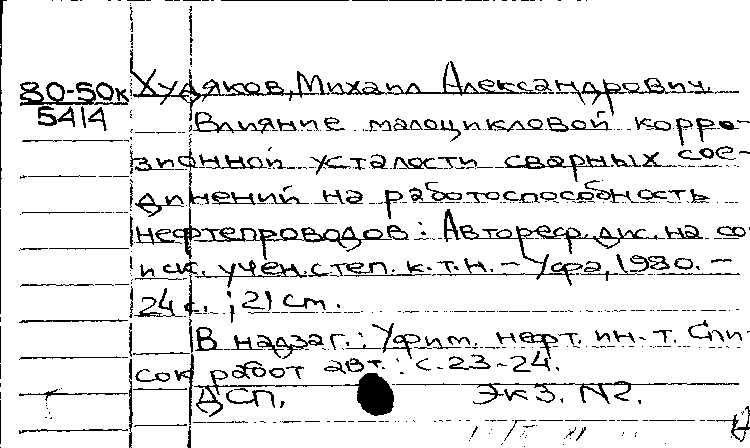 80-50к Худяков, Михаил Александрович.
5414
Влияние малоцикловой корро-
зионной усталости сварных сое-
динений на работоспособность
нефтепроводов: Автореф. дис. на со
иск. учен. степ. к.т.н. – Уфа, 1980. –
24 с. ; 21 см.
В надзаг.: Уфим. нефт. ин-т. Спи-
сок работ авт.: с. 23-24.
ДСП. Экз. N2.